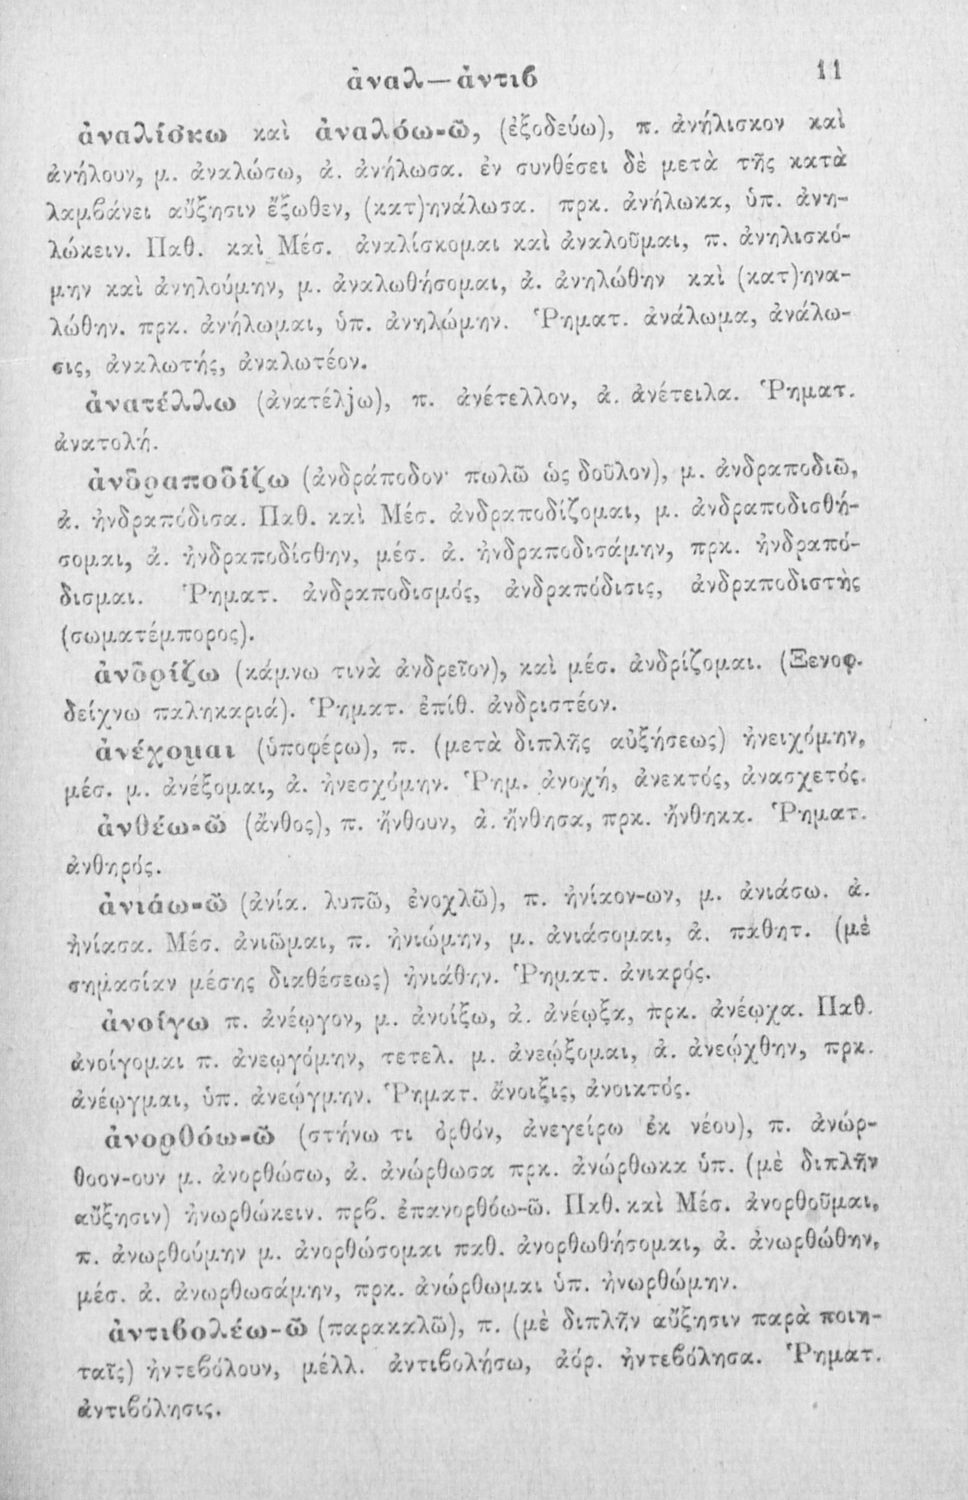 ἀναλ—ἀντιβ 11
ἀναλίσκω καὶ ἀναλόω-ῶ, (ἐξοδεύω), π. ἀνήλισκον καὶ
ἀνήλουν, μ. ἀναλώσω, ἀ. ἀνήλωσα. ἐν συνθέσει δὲ μετὰ τῆς κατὰ
λαμβάνει αὔξησιν ἔξωθεν, (κατ)ηνάλωσα. πρκ. ἀνήλωκα, ὑπ. ἀνη-
λώκειν. Παθ. καὶ Μέσ. ἀναλίσκομαι καὶ ἀναλοῦμαι, π. ἀνηλισκό-
μην καὶ ἀνηλούμην, μ. ἀναλωθήσομαι, ἀ. ἀνηλώθην καὶ (κατ)ηνα-
λώθην. πρκ. ἀνήλωμαι, ὑπ. ἀνηλώμην. Ῥηματ. ἀνάλωμα, ἀνάλω-
σις, ἀναλωτής, ἀναλωτέον.
ἀνατέλλω (ἀνατέλjω), π. ἀνέτελλον, ἀ. ἀνέτειλα. Ῥηματ.
ἀνατολή.
ἀνδραποδίζω (ἀνδράποδον· πωλῶ ὡς δοῦλον), μ. ἀνδραποδιῶ,
ἀ. ἠνδραπόδισα. Παθ. καὶ Μέσ. ἀνδραποδίζομαι, μ. ἀνδραποδισθή-
σομαι, ἀ. ἠνδραποδίσθην, μέσ. ἀ. ἠνδραποδισάμην, πρκ. ἠνδραπό-
δισμαι. Ῥηματ. ἀνδραποδισμός, ἀνδραπόδισις, ἀνδραποδιστὴς
(σωματέμπορος).
ἀνδρίζω (κάμνω τινὰ ἀνδρεῖον), καὶ μέσ. ἀνδρίζομαι. (Ξενοφ.
δείχνω παληκαριά). Ῥηματ. ἐπίθ. ἀνδριστέον.
ἀνέχομαι (ὑποφέρω), π. (μετὰ διπλῆς αὐξήσεως) ἠνειχόμην,
μέσ. μ. ἀνέξομαι, ἀ. ἠνεσχόμην. Ῥημ. ἀνοχή, ἀνεκτός, ἀνασχετός.
ἀνθέω-ῶ (ἄνθος), π. ἤνθουν, ἀ. ἤνθησα, πρκ. ἤνθηκα. Ῥηματ.
ἀνθηρός.
ἀνιάω-ῶ (ἀνία. λυπῶ, ἐνοχλῶ), π. ἠνίαον-ων, μ. ἀνιάσω. ἀ.
ἠνίασα. Μέσ. ἀνιῶμαι, π. ἠνιώμην, μ. ἀνιάσομαι, ἀ. παθητ. (μὲ
σημασίαν μέσης διαθέσεως) ἠνιάθην. Ῥηματ. ἀνιαρός.
ἀνοίγω π. ἀνέῳγον, μ. ἀνοίξω, ἀ. ἀνέῳξα, πρκ. ἀνέῳχα. Παθ.
ἀνοίγομαι π. ἀνεῳγόμην, τετελ. μ. ἀνεῴξομαι, ἀ. ἀνεῴχθην, πρκ.
ἀνέῳγμαι, ὑπ. ἀνεῴγμην. Ῥηματ. ἄνοιξις, ἀνοικτός.
ἀνορθόω-ῶ (στήνω τι ὀρθόν, ἀνεγείρω ἐκ νέου), π. ἀνώρ-
θοον-ουν μ. ἀνορθώσω, ἀ. ἀνώρθωσα πρκ. ἀνώρθωκα ὑπ. (μὲ διπλῆν
αὔξησιν) ἠνωρθώκειν. πρβ. ἐπανορθόω-ῶ. Παθ. καὶ Μέσ. ἀνορθοῦμαι,
π. ἀνωρθούμην μ. ἀνορθώσομαι παθ. ἀνορθωθήσομαι, ἀ. ἀνωρθώθην,
μέσ. ἀ. ἀνωρθωσάμην, πρκ. ἀνώρθωμαι ὑπ. ἠνωρθώμην.
ἀντιβολέω-ῶ (παρακαλῶ), π. (μὲ διπλῆν αὔξησιν παρὰ ποιη-
ταῖς) ἠντεβόλουν, μέλλ. ἀντιβολήσω, ἀόρ. ἠντεβόλησα. Ῥηματ.
ἀντιβόλησις.